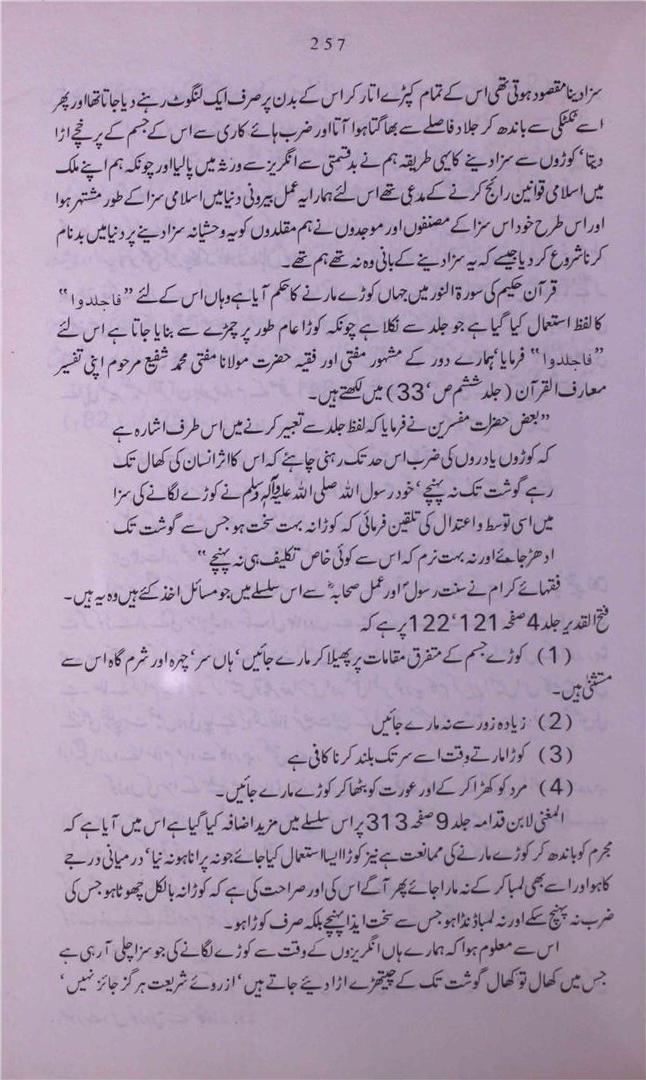 257
سزا دینا مقصود ہوتی تھی اس کے تمام کپڑے اتار کر اس کے بدن پر صرف ایک لنگوٹ رہنے دیا جاتا تھا اور پھر
اسے ٹکٹکی سے باندھ کر جلاد فاصلے سے بھاگتا ہوا آتا اور ضرب ہائے کاری سے اس کے جسم کے پرخچے اڑا
دیتا‘ کوڑوں سے سزا دینے کا یہی طریقہ ہم نے بدقسمتی سے انگریز سے ورثہ میں پالیا اور چونکہ ہم اپنے ملک
میں اسلامی قوانین رائج کرنے کے مدعی تھے اس لئے ہمارا یہ عمل بیرونی دنیا میں اسلامی سزا کے طور مشتہر ہوا
اور اس طرح خود اس سزا کے مصنفوں اور موجدوں نے ہم مقلدوں کو یہ وحشیانہ سزا دینے پر دنیا میں بدنام
کرنا شروع کر دیا جیسے کہ یہ سزا دینے کے بانی وہ نہ تھے ہم تھے۔
قرآن حکیم کی سورۃ النور میں جہاں کوڑے مارنے کا حکم آیا ہے وہاں اس کے لئے ”فاجلدوا“
کا لفظ استعمال کیا گیا ہے جو جلد سے نکلا ہے چونکہ کوڑا عام طور پر چمڑے سے بنایا جاتا ہے اس لئے
”فاجلدوا“ فرمایا‘ ہمارے دور کے مشہور مفتی اور فقیہ حضرت مولانا مفتی محمد شفیع مرحوم اپنی تفسیر
معارف القرآن (جلد ششم ص‘ 33) میں لکھتے ہیں۔
”بعض حضرت مفسرین نے فرمایا کہ لفظ جلد سے تعبیر کرنے میں اس طرف اشارہ ہے
کہ کوڑوں یا دروں کی ضرب اس حد تک رہنی چاہئے کہ اس کا اثر انسان کی کھال تک
رہے گوشت تک نہ پہنچے‘ خود رسول اللہ صلی اللہ علیہ وآلہ وسلم نے کوڑے لگانے کی سزا
میں اسی توسط و اعتدال کی تلقین فرمائی کہ کوڑا نہ بہت سخت ہو جس سے گوشت تک
ادھڑ جائے اور نہ بہت نرم کہ اس سے کوئی خاص تکلیف ہی نہ پہنچے“
فقہائے کرام نے سنت رسولؐ اور عمل صحابہؓ سے اس سلسلے میں جو مسائل اخذ کئے ہیں وہ یہ ہیں۔
فتح القدیر جلد 4 صفحہ 121‘ 122 پر ہے کہ
(1) کوڑے جسم کے متفرق مقامات پر پھیلا کر مارے جائیں‘ ہاں سر‘ چہرہ اور شرم گاہ اس سے
مستثنیٰ ہیں۔
(2) زیادہ زور سے نہ مارے جائیں
(3) کوڑا مارتے وقت اسے سر تک بلند کرنا کافی ہے
(4) مرد کو کھڑا کر کے اور عورت کو بٹھا کر کوڑے مارے جائیں۔
المغنی لابن قدامہ جلد 9 صفحہ 313 پر اس سلسلے میں مزید اضافہ کیا گیا ہے اس میں آیا ہے کہ
مجرم کو باندھ کر کوڑے مارنے کی ممانعت ہے نیز کوڑا ایسا استعمال کیا جائے جو نہ پرانا ہو نہ نیا‘ درمیانی درجے
کا ہو اور اسے بھی لمبا کر کے نہ مارا جائے پھر آگے اس کی اور صراحت کی ہے کہ کوڑا نہ بالکل چھوٹا ہو جس کی
ضرب نہ پہنچ سکے اور نہ لمبا ڈنڈا ہو جس سے سخت ایذا پہنچے بلکہ صرف کوڑا ہو۔
اس سے معلوم ہوا کہ ہمارے ہاں انگریزوں کے وقت سے کوڑے لگانے کی جو سزا چلی آ رہی ہے
جس میں کھال تو کھال گوشت تک کے چیتھڑے اڑا دیئے جاتے ہیں‘ ازروئے شریعت ہرگز جائز نہیں‘